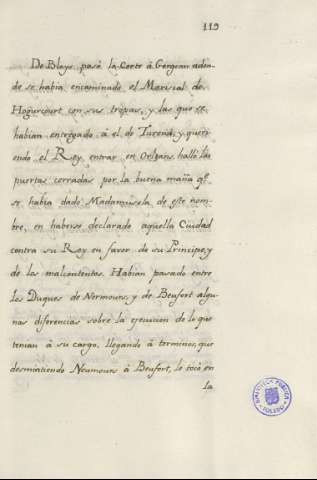 119
De Bloys pasó la Corte á Gergeau adon-
de se habia encaminado el Mariscal de
Hogurcourt con sus tropas, y las que se
habian entregado á el de Turena, y, quer-
endo el Rey entrar en Orleans halló las
puertas cerradas por la buena maña q.e
se habia dado Madamusela de este nom-
bre, en haberse declarado aquella Ciudad
contra su Rey en favor de su Principe, y
de los malcontentos. Habian pasado entre
los Duques de Nermours, y de Beufort algu-
nas diferencias sobre la ejecucion de lo que
tenian á su cargo, llegando á terminos, que
desmintiendo Neumours á Beufort, le tocó en
la
BIBLIOTECA PUBLICA
TOLEDO